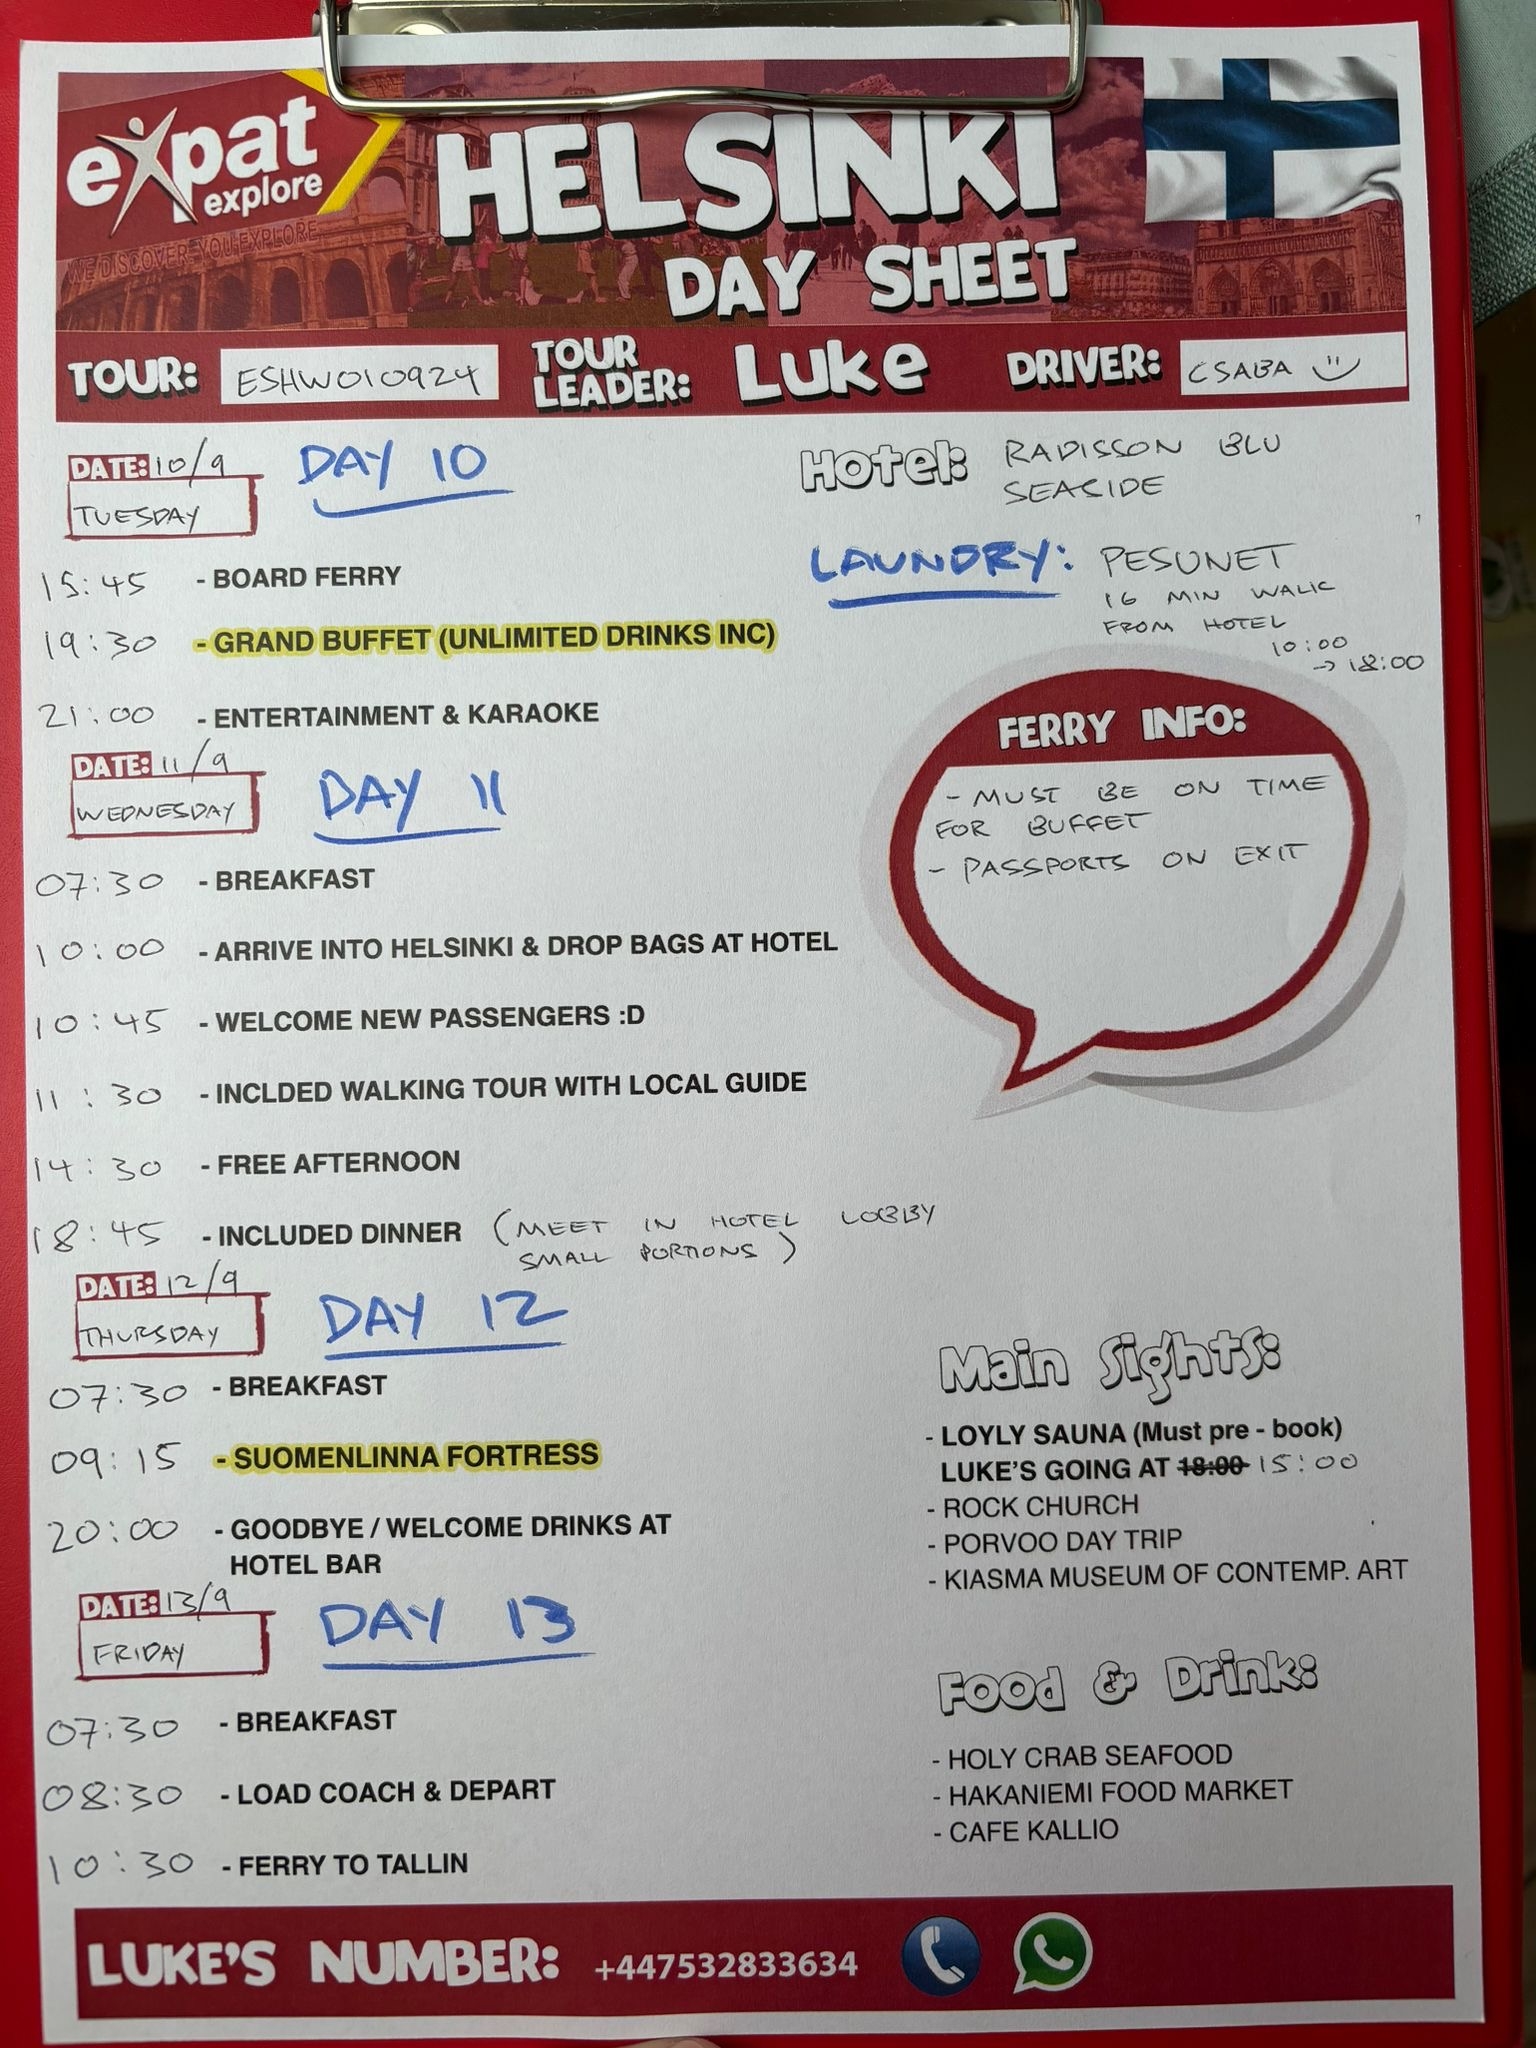 expat
explore
WE DISCOVER YOU EXPLORE
HELSINKI
DAY SHEET
TOUR: ESHW010924
TOUR LEADER: Luke
DRIVER: CSABA
DATE: 10/9
TUESDAY
DAY 10
15:45 - BOARD FERRY
19:30 - GRAND BUFFET (UNLIMITED DRINKS INC)
21:00 - ENTERTAINMENT & KARAOKE
Hotel: RADISSON BLU
SEASIDE
LAUNDRY: PESUNET
16 MIN WALK
FROM HOTEL
10:00
→ 18:00
FERRY INFO:
- MUST BE ON TIME
FOR BUFFET
- PASSPORTS ON EXIT
DATE: 11/9
WEDNESDAY
DAY 11
07:30 - BREAKFAST
10:00 - ARRIVE INTO HELSINKI & DROP BAGS AT HOTEL
10:45 - WELCOME NEW PASSENGERS :D
11:30 - INCLDED WALKING TOUR WITH LOCAL GUIDE
14:30 - FREE AFTERNOON
18:45 - INCLUDED DINNER (MEET IN HOTEL LOBBY
SMALL PORTIONS)
DATE: 12/9
THURSDAY
DAY 12
07:30 - BREAKFAST
09:15 - SUOMENLINNA FORTRESS
20:00 - GOODBYE / WELCOME DRINKS AT
HOTEL BAR
Main Sights:
- LOYLY SAUNA (Must pre - book)
LUKE'S GOING AT 18:00 15:00
- ROCK CHURCH
- PORVOO DAY TRIP
- KIASMA MUSEUM OF CONTEMP. ART
DATE: 13/9
FRIDAY
DAY 13
07:30 - BREAKFAST
08:30 - LOAD COACH & DEPART
10:30 - FERRY TO TALLIN
Food & Drink:
- HOLY CRAB SEAFOOD
- HAKANIEMI FOOD MARKET
- CAFE KALLIO
LUKE'S NUMBER: +447532833634